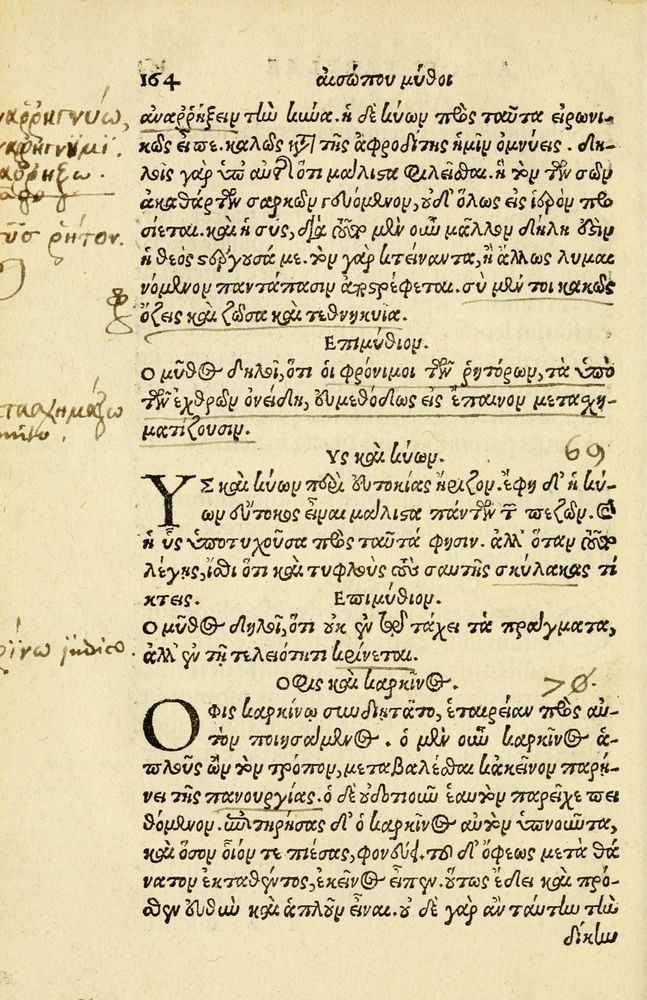 164 αἰσώπου μύθοι
ἀναρρήξειν τὴν κύνα. ἡ δὲ κύων πρὸς ταῦτα εἰρωνι-
κῶς εἶπε. καλῶς κατὰ τῆς ἀφροδίτης ἡμῖν ὀμνύεις. δη-
λοῖς γὰρ ὑπ' αὐτῆς ὅτι μάλιστα φιλεῖσθαι. ἣ τὸν τῶν σῶν
ἀκαθάρτων σαρκῶν γευόμενον, οὐδ' ὅλως εἰς ἱερὸν προ
σίεται. καὶ ἡ σῦς, διὰ τοῦτο μὲν οὖν μᾶλλον δήλη ἐστὶν
ἡ θεὸς στέργουσά με. τὸν γὰρ κτείναντα, ἢ ἄλλως λυμαι
νόμενον παντάπασιν ἀποστρέφεται. σὺ μέν τοι κακῶς
ὄζεις καὶ ζῶσα καὶ τεθνηκυῖα.
Επιμύθιον.
Ο μῦθος δηλοῖ, ὅτι οἱ φρόνιμοι τῶν ῥητόρων, τὰ ὑπὸ
τῶν ἐχθρῶν ὀνείδη, εὐμεθόδως εἰς ἔπαινον μετασχη-
ματίζουσιν.
Υς καὶ κύων. 69
ΥΣ καὶ κύων περὶ εὐτοκίας ἤριζον. ἔφη δ' ἡ κύ-
ων εὔτοκος εἶναι μάλιστα πάντων τῶν πεζῶν. καὶ
ἡ ὗς ὑποτυχοῦσα πρὸς ταῦτά φησιν. ἀλλ' ὅταν τοῦτο
λέγῃς, ἴσθι ὅτι καὶ τυφλοὺς τοὺς σαυτῆς σκύλακας τί
κτεις. Επιμύθιον.
Ο μῦθος δηλοῖ, ὅτι οὐκ ἐν τῷ τάχει τὰ πράγματα,
ἀλλ' ἐν τῇ τελειότητι κρίνεται.
Οφις καὶ καρκῖνος. 70.
Οφις καρκίνῳ συνδιῃτᾶτο, ἑταιρείαν πρὸς αὐ-
τὸν ποιησάμενος. ὁ μὲν οὖν καρκῖνος ἁ-
πλοῦς ὢν τὸν τρόπον, μεταβαλέσθαι κἀκεῖνον παρῄ-
νει τῆς πανουργίας. ὁ δὲ οὐδοτιοῦν ἑαυτὸν παρεῖχε πει
θόμενον. ἐπιτηρήσας δ' ὁ καρκῖνος αὐτὸν ὑπνοῦντα,
καὶ ὅσον οἷόν τε πιέσας, φονεύει. τοῦ δ' ὄφεως μετὰ θά
νατον ἐκταθέντος, ἐκεῖνος εἶπεν. οὕτως ἔδει καὶ πρό-
σθεν εὐθὺν καὶ ἁπλοῦν εἶναι. οὐ δὲ γὰρ ἂν ταύτην τὴν
δίκην